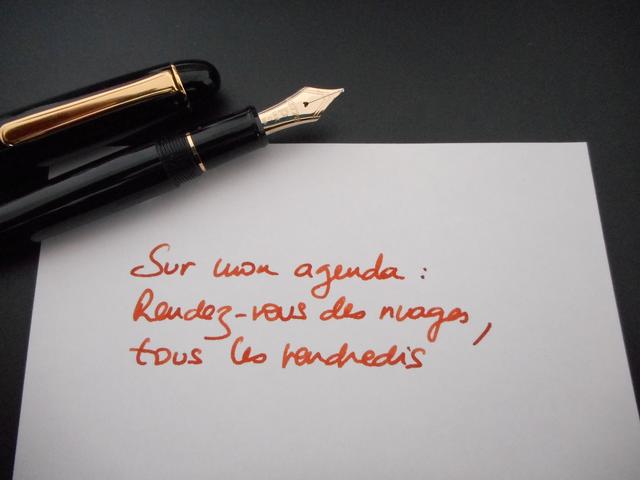 Sur mon agenda :
Rendez-vous des nuages,
tous les vendredis